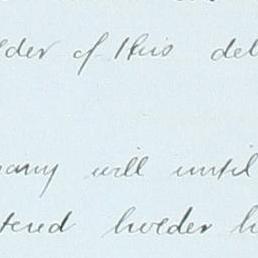 lder of this del
pany will until
tered holder h